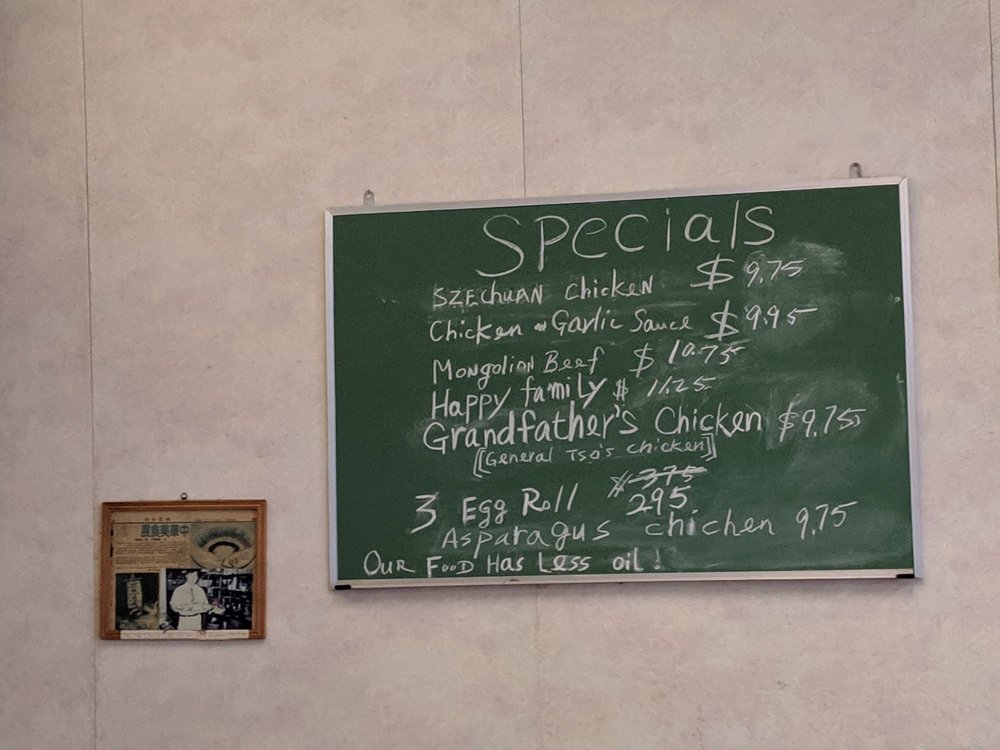 Specials
SZEchuAN chicken $ 9.75
Chicken w Garlic Sauce $ 9.95
Mongolian Beef $ 10.75
Happy family $ 11.25
Grandfather's Chicken $9.75
[General Tso's chicken]
$ 375
3 Egg Roll 295
Asparagus chichen 9.75
Our Food Has Less oil !
中華美食風